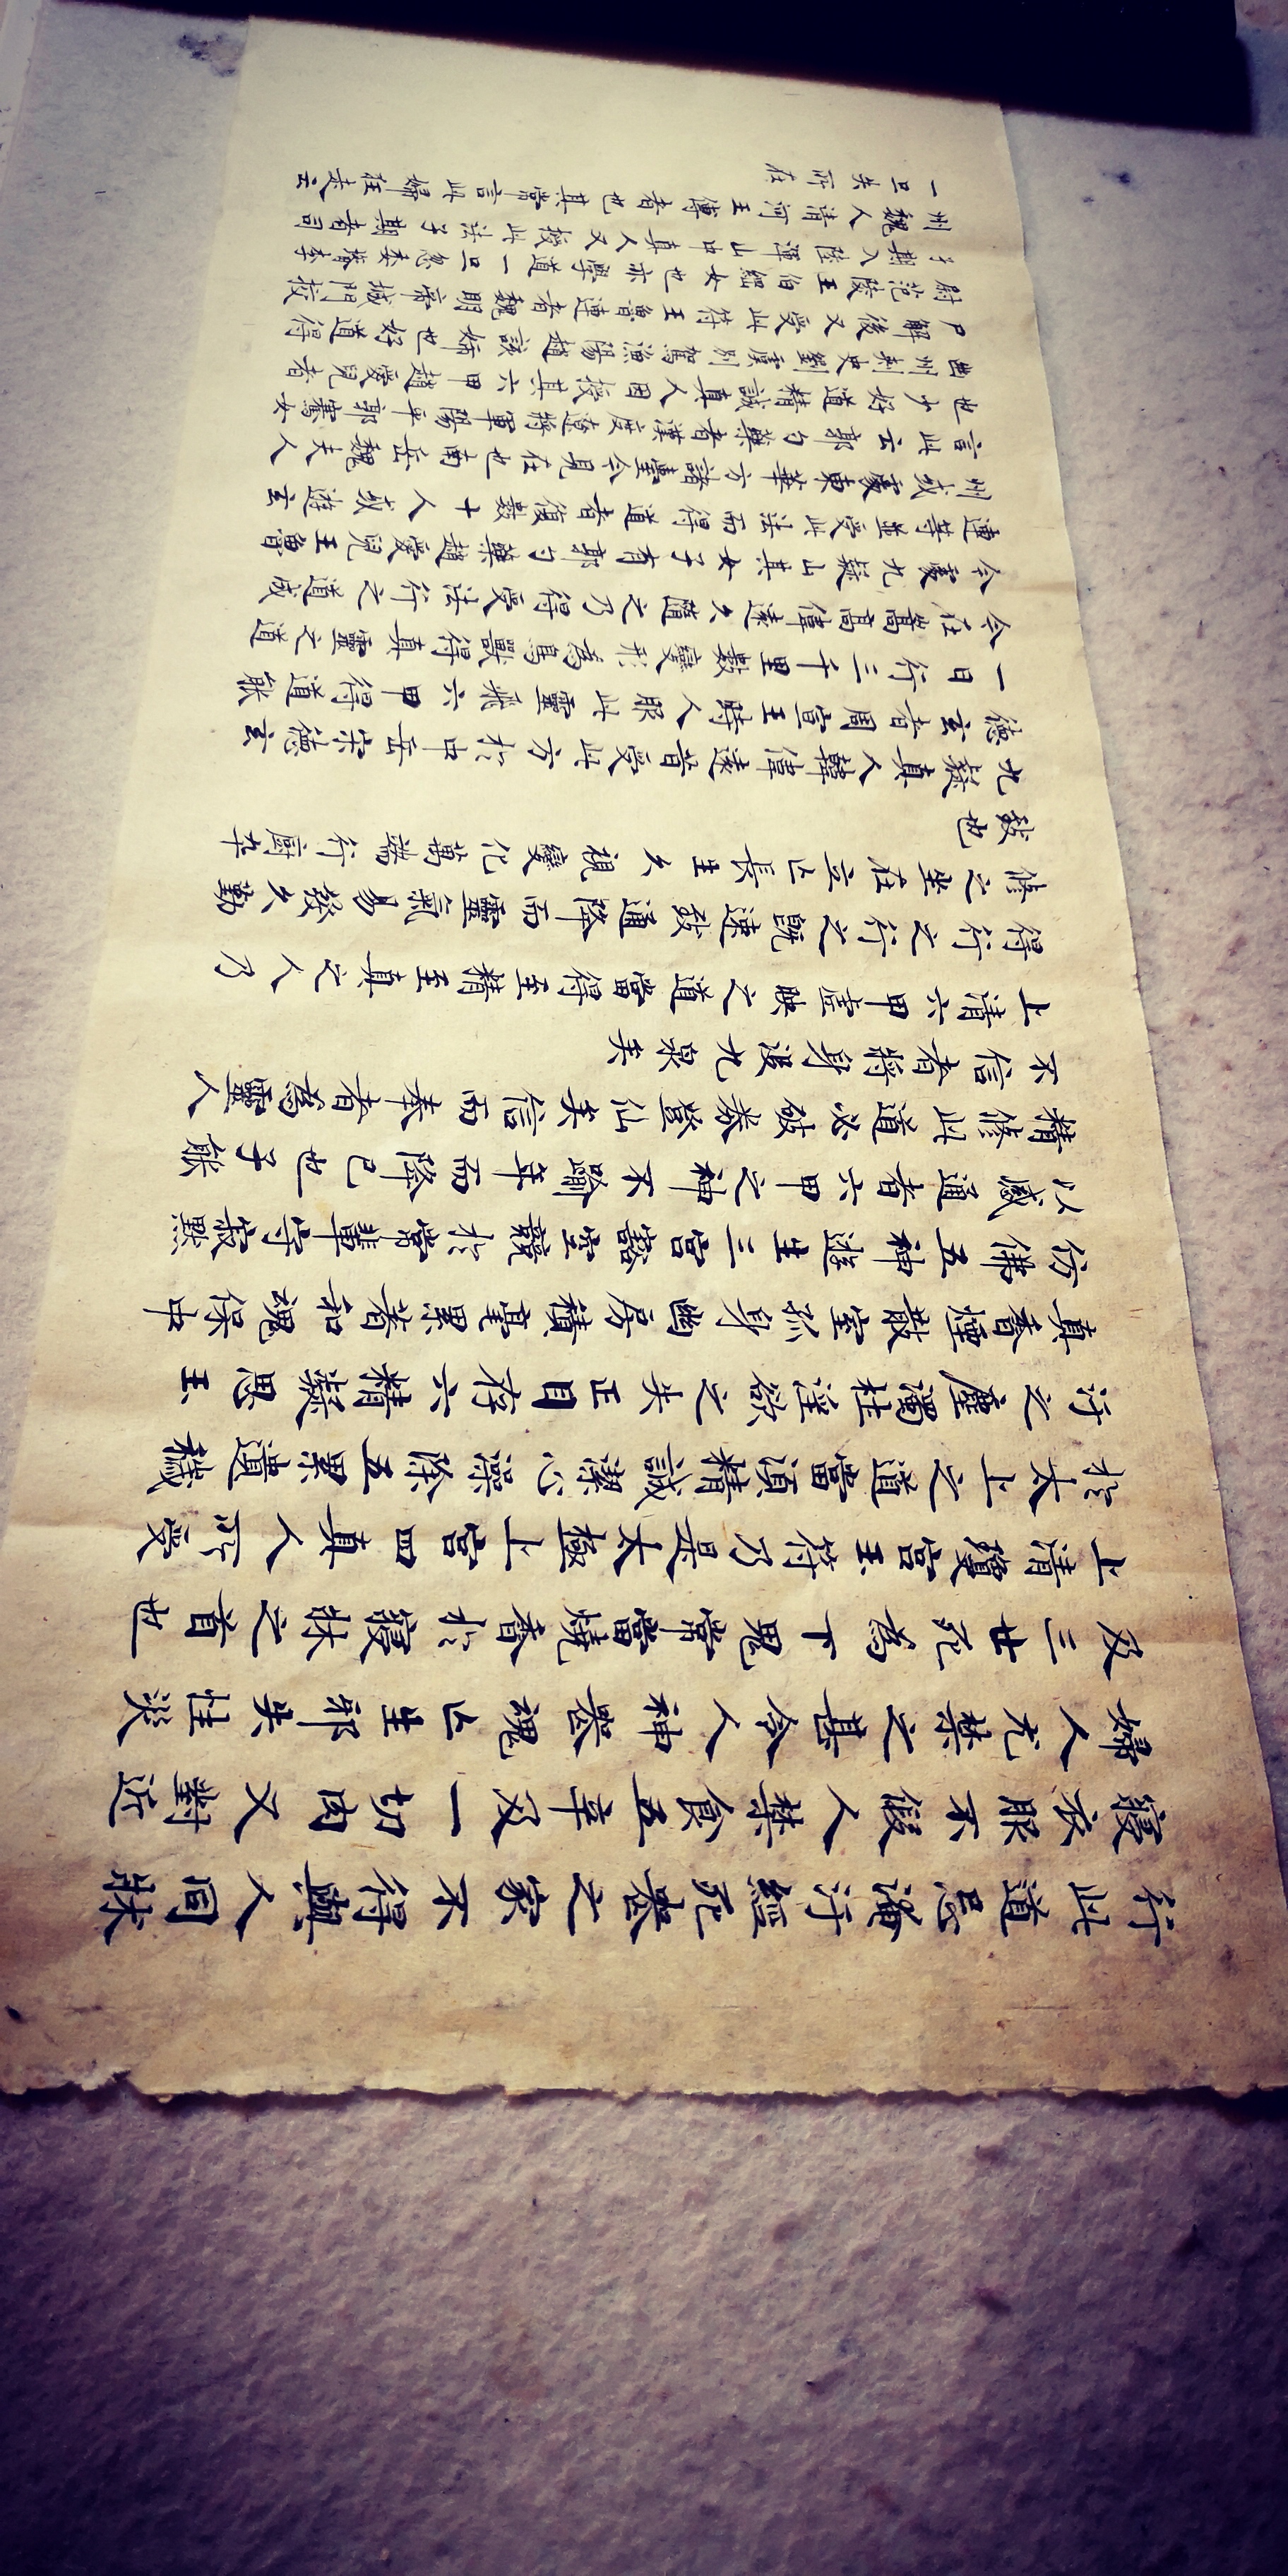 行此道忌淹汙經死喪之家不得與人同牀
寢衣服不假人禁食五辛及一切肉又對近
婦人尤禁之甚令人神喪魂亡生邪失性災
及三世死為下鬼常當燒香於寢牀之首也
上清瓊宮玉符乃是太極上宮四真人所受
於太上之道當須精誠潔心澡除五累遺穢
汙之塵濁杜淫欲之失正目存六精凝思玉
真香煙散室孤身幽房積毫累著和魂保中
仿佛五神遊生三宮豁空競於常輩守寂默
以感通者六甲之神不踰年而降己也子能
精修此道必破券登仙矣信而奉者為靈人
不信者將身沒九泉矣
上清六甲虛映之道當得至精至真之人乃
得行之行之既速致通降而靈氣易發久勤
修之坐在立亡長生久視變化萬端行廚卒
致也
九疑真人韓偉遠昔受此方於中岳宋德玄
德玄者周宣王時人服此靈飛六甲得道能
一日行三千里數變形為鳥獸得真靈之道
今在嵩高偉遠久隨之乃得受法行之道成
今處九疑山其女子有郭勺藥趙愛兒王魯
連等並受此法而得道者復數十人或遊玄
州或處東華方諸臺今見在也南岳魏夫人
言此云郭勺藥者漢度遼將軍陽平郭騫女
也少好道精誠真人因授其六甲趙愛兒者
幽州刺史劉虞別駕漁陽趙該婦也好道得
尸解後又受此符王魯連者魏明帝城門校
尉范陵王伯綱女也亦學道一旦忽委婿李
子期入陸渾山中真人又授此法子期者司
州魏人清河王傅者也其常言此婦狂走云
一旦失所在